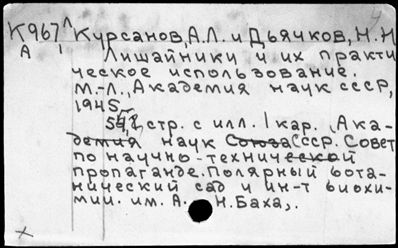 К967 Курсанов, А.Л. и Дьячков, Н.Н
А Лишайники и их практи
ческое использование.
М.-Л., Академия наук СССР,
1945
54, 2 стр. с илл. 1 кар. (Ака-
демия наук Союза ССР. Совет
по научно-технической
пропаганде. Полярный бота-
нический сад и ин-т биохи-
мии. им. А. Н. Баха,.